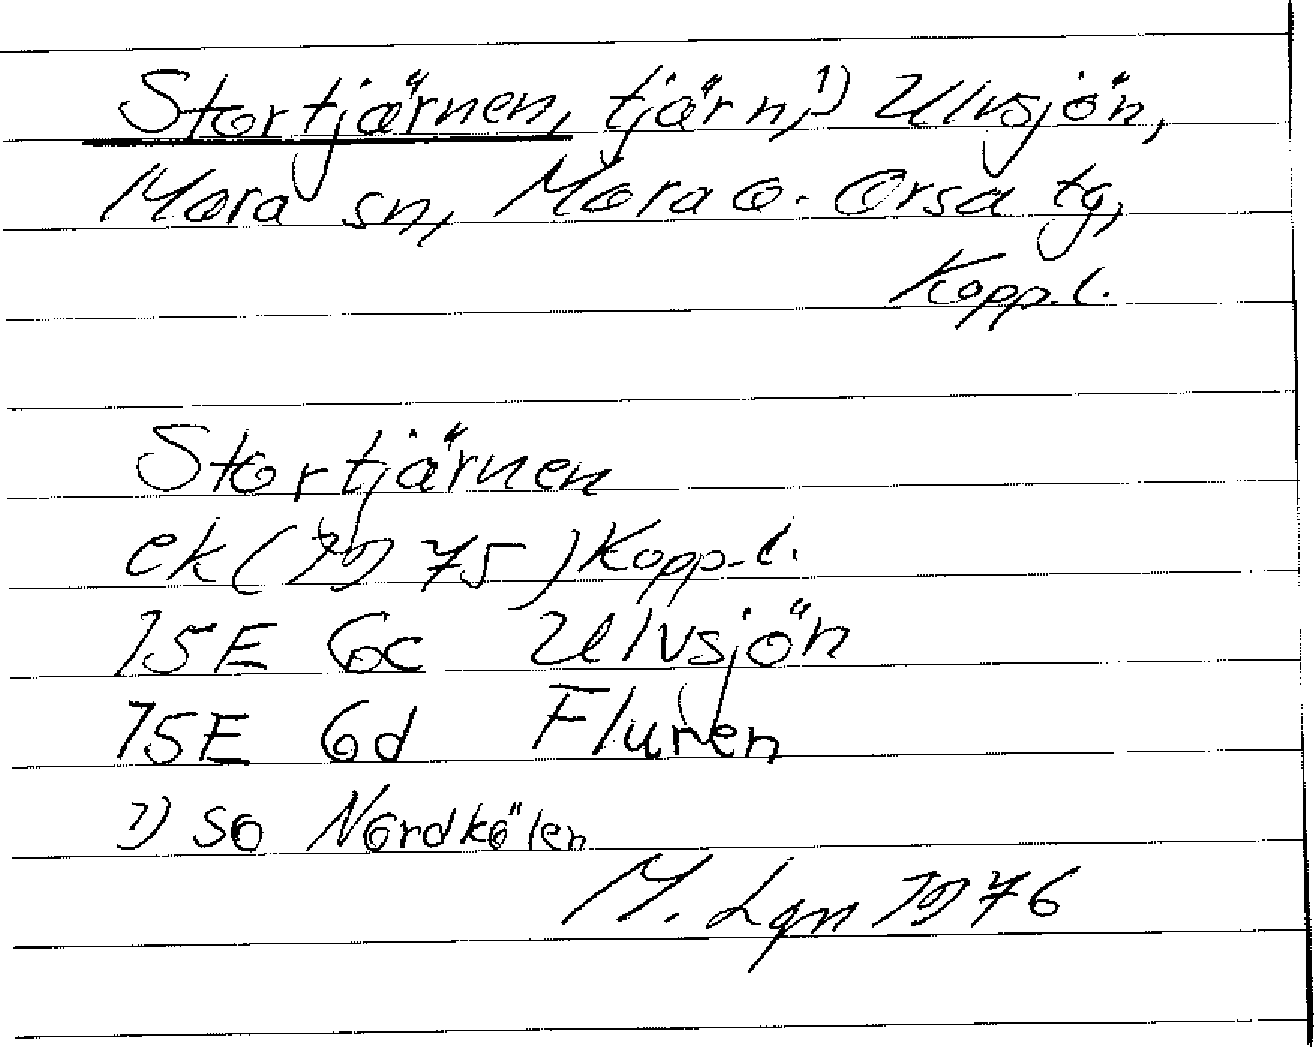 Stortjärnen, tjärn,¹) Ulvsjön,
Mora sn, Mora o. Orsa tg,
Kopp. l.
Stortjärnen
ek (1975) Kopp. l.
15E 6c Ulvsjön
15E 6d Flunen
1) so Nordkölen
M. Lgn 1976